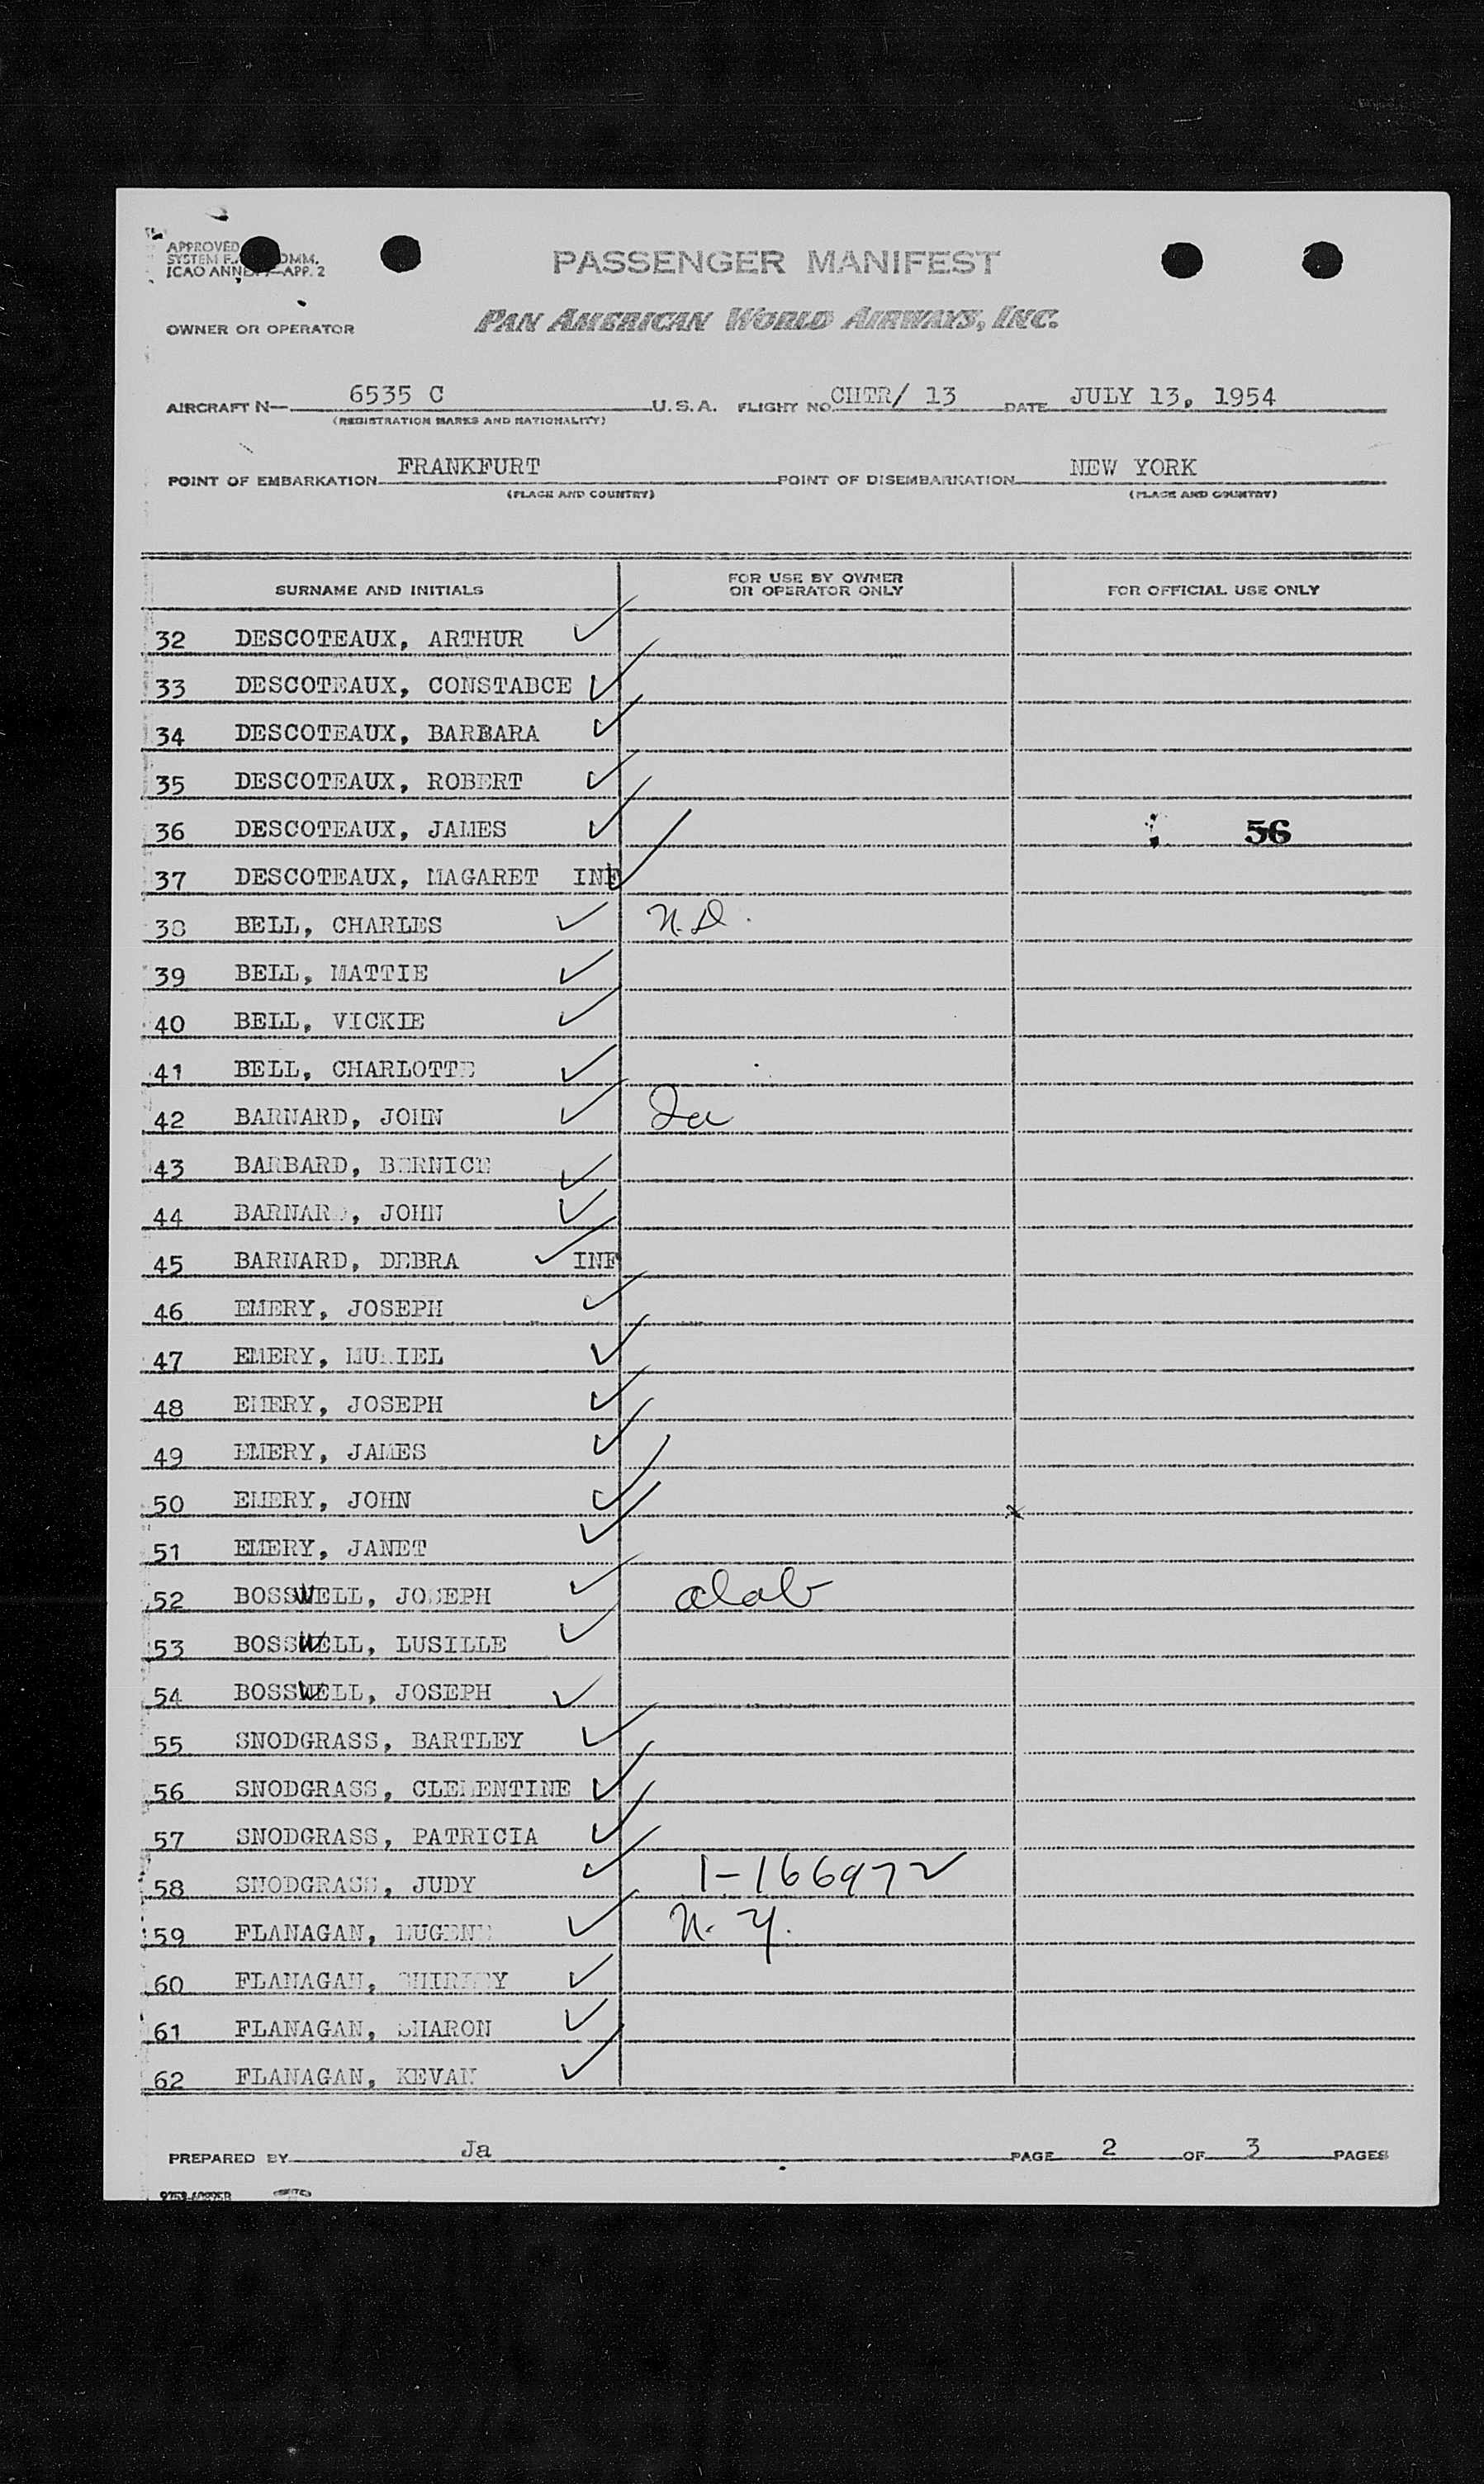 APPROVED
SYSTEM COMM.
ICAO ANNEX APP. 2
PASSENGER MANIFEST
OWNER OR OPERATOR PAN AMERICAN WORLD AIRWAYS, INC.
AIRCRAFT N— 6535 C U.S.A. FLIGHT NO. CHTR/ 13 DATE JULY 13, 1954
(REGISTRATION MARKS AND NATIONALITY)
POINT OF EMBARKATION FRANKFURT POINT OF DISEMBARKATION NEW YORK
(PLACE AND COUNTRY) (PLACE AND COUNTRY)
SURNAME AND INITIALS FOR USE BY OWNER OR OPERATOR ONLY FOR OFFICIAL USE ONLY
32 DESCOTEAUX, ARTHUR ✓
33 DESCOTEAUX, CONSTABCE ✓
34 DESCOTEAUX, BARBARA ✓
35 DESCOTEAUX, ROBERT ✓
36 DESCOTEAUX, JAMES ✓ 56
37 DESCOTEAUX, MAGARET INF ✓
38 BELL, CHARLES ✓ N.D.
39 BELL, MATTIE ✓
40 BELL, VICKIE ✓
41 BELL, CHARLOTTE ✓
42 BARNARD, JOHN ✓
43 BARBARD, BERNICE ✓
44 BARNARD, JOHN ✓
45 BARNARD, DEBRA ✓ INF
46 EMERY, JOSEPH ✓
47 EMERY, MURIEL ✓
48 EMERY, JOSEPH ✓
49 EMERY, JAMES ✓
50 EMERY, JOHN ✓
51 EMERY, JANET ✓
52 BOSSWELL, JOSEPH ✓ alab
53 BOSSWELL, LUSILLE ✓
54 BOSSWELL, JOSEPH ✓
55 SNODGRASS, BARTLEY ✓
56 SNODGRASS, CLEMENTINE ✓
57 SNODGRASS, PATRICIA ✓
58 SNODGRASS, JUDY ✓ 1-166972
59 FLANAGAN, EUGENE ✓ N. Y.
60 FLANAGAN, SHIRLEY ✓
61 FLANAGAN, SHARON ✓
62 FLANAGAN, KEVAN ✓
PREPARED BY Ja PAGE 2 OF 3 PAGES